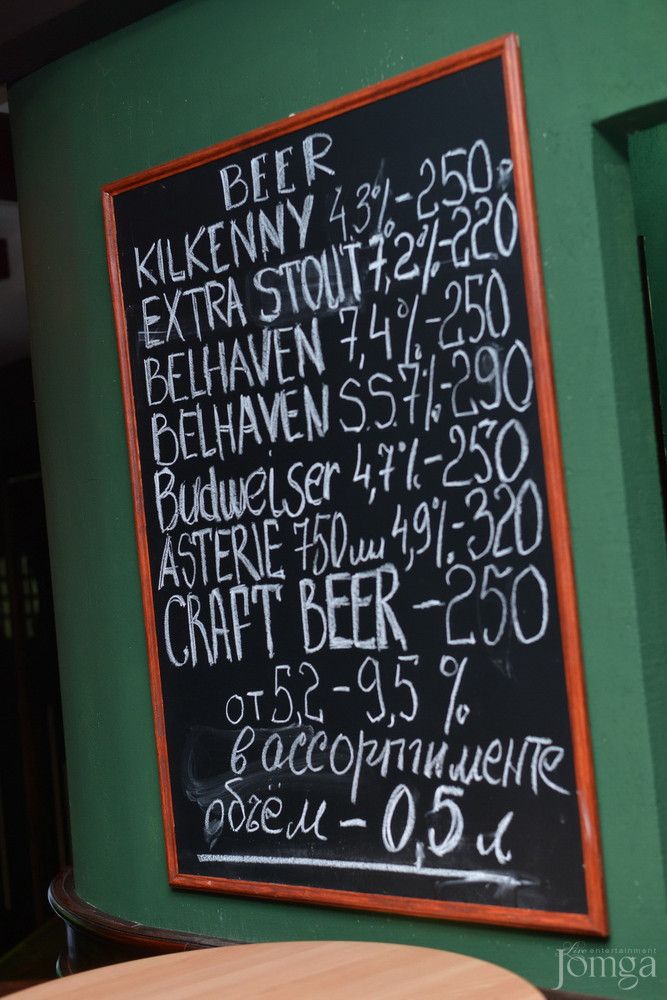 BEER
KILKENNY 4.3%-250р
EXTRA STOUT 7,2%-220
BELHAVEN 7,4%-250
BELHAVEN S.S.7%-290
Budweiser 4,7%-250
ASTERIE 750мл 4,9%-320
CRAFT BEER -250
от 5,2-9,5%
в ассортименте
объём - 0,5 л
Live entertainment
Jomga